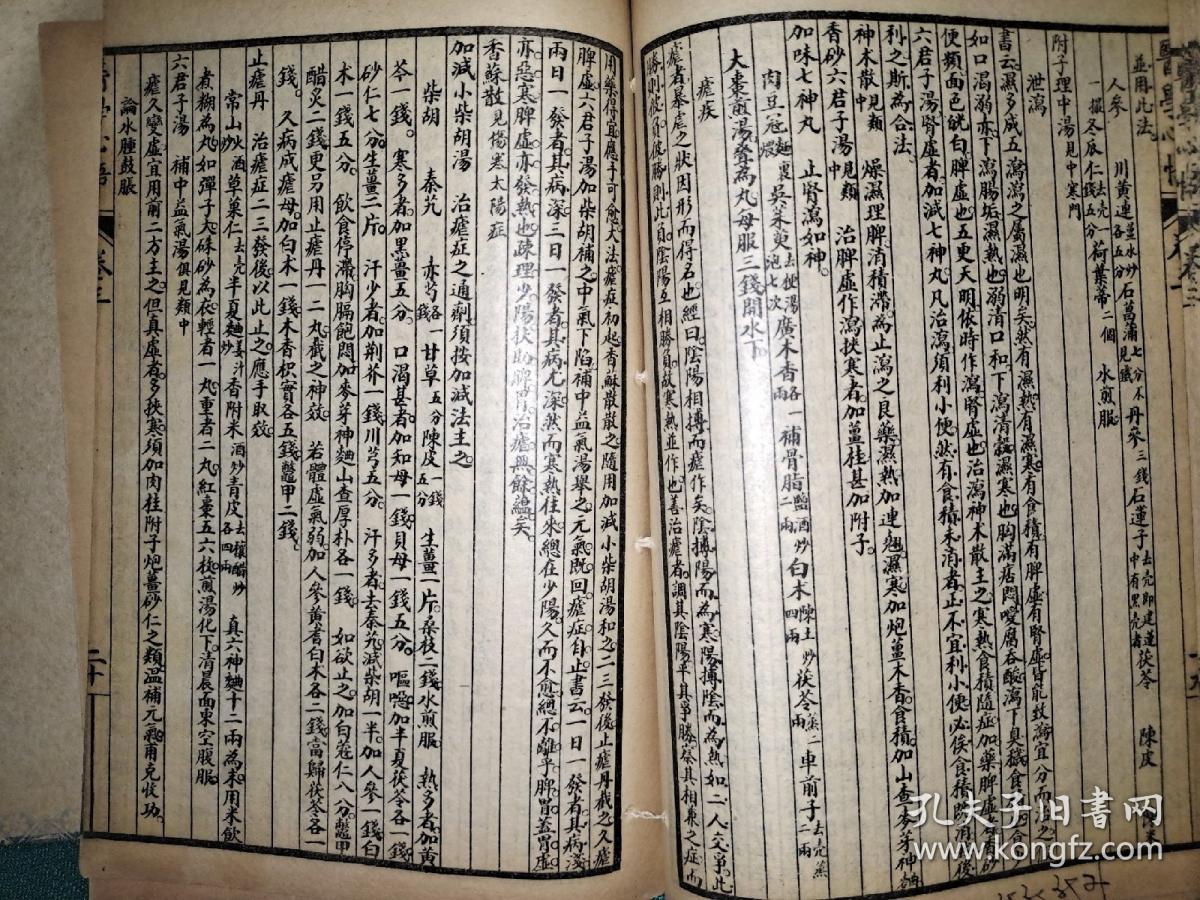 並用此法
人參 川黃連 薑水炒各五分 石菖蒲 七分不見鐵 丹參 三錢 石蓮子 去壳即建蓮中有黑壳者 茯苓 陳皮
一撮冬瓜仁 去壳一錢五分 荷葉蒂二個 水煎服
附子理中湯 見中寒門
泄瀉
書云濕多成五瀉瀉之屬濕也明矣然有濕熱有濕寒有食積有脾虛有腎虛皆能致瀉宜分而治之
如口渴溺赤下瀉腸垢濕熱也溺清口和下瀉清穀濕寒也胸滿痞悶噯腐吞酸瀉下臭穢食積也食少
便頻面色㿠白脾虛也五更天明依時作瀉腎虛也治瀉神朮散主之寒熱食積隨症加藥脾虛者香砂
六君子湯腎虛者加減七神丸凡治瀉須利小便然有食積未消者正不宜利小便必俟食積既消然後
利之斯為合法
神朮散 見類中 燥濕理脾消積滯為止瀉之良藥濕熱加連翹濕寒加炮薑木香食積加山查麥芽神麯
香砂六君子湯 見類中 治脾虛作瀉挾寒者加薑桂甚加附子
加味七神丸 止腎瀉如神
肉豆寇 麵裹煨 吳茱萸 去梗湯泡七次 廣木香 各一兩 補骨脂 鹽酒炒二兩 白朮 陳土炒四兩 茯苓 蒸二兩 車前子 去壳蒸二兩
大棗煎湯疊為丸每服三錢開水下
瘧疾
瘧者暴虐之狀因形而得名也經曰陰陽相搏而瘧作矣陰搏陽而為寒陽搏陰而為熱如二人交爭此
勝則彼負彼勝則此負陰陽互相勝負故寒熱並作也善治瘧者調其陰陽平其爭勝察其相兼之症而
用藥得宜應手可愈大法瘧症初起香蘇散散之隨用加減小柴胡湯和之二三發後止瘧丹截之久瘧
脾虛六君子湯加柴胡補之中氣下陷補中益氣湯舉之元氣既回瘧症自止書云一日一發者其病淺
兩日一發者其病深三日一發者其病尤深然而寒熱往來總在少陽久而不愈總不離乎脾胃蓋胃虛
亦惡寒脾虛亦發熱也疎理少陽扶助脾胃治瘧無餘蘊矣
香蘇散 見傷寒太陽症
加減小柴胡湯 治瘧症之通劑須按加減法主之
柴胡 秦艽 赤芍 各一錢 甘草 五分 陳皮 一錢五分 生薑一片桑枝二錢水煎服 熱多者加黃
芩一錢 寒多者加黑薑五分 口渴甚者加知母一錢貝母一錢五分 嘔惡加半夏茯苓各一錢
砂仁七分生薑二片 汗少者加荊芥一錢川芎五分 汗多者去秦艽減柴胡一半加人參一錢白
朮一錢五分 飲食停滯胸膈飽悶加麥芽神麯山查厚朴各一錢 如欲止之加白蔻仁八分鱉甲
醋炙二錢更另用止瘧丹一二丸截之神效 若體虛氣弱加人參黃耆白朮各二錢當歸茯苓各一
錢 久病成瘧母加白朮一錢木香枳實各五錢鱉甲二錢
止瘧丹 治瘧症二三發後以此止之應手取效
常山 火酒炒 草菓仁 去壳 半夏麯 姜汁炒 香附米 酒炒 青皮 去穰醋炒各四兩 真六神麯十二兩為末用米飲
煮糊為丸如彈子大硃砂為衣輕者一丸重者二丸紅棗五六枚煎湯化下清晨面東空腹服
六君子湯 補中益氣湯 俱見類中
瘧久變虛宜用前二方主之但真虛者多挾寒須加肉桂附子炮薑砂仁之類溫補元氣甫克收功
論水腫鼓脹
卷三
二十
孔夫子旧书网
www.kongfz.com